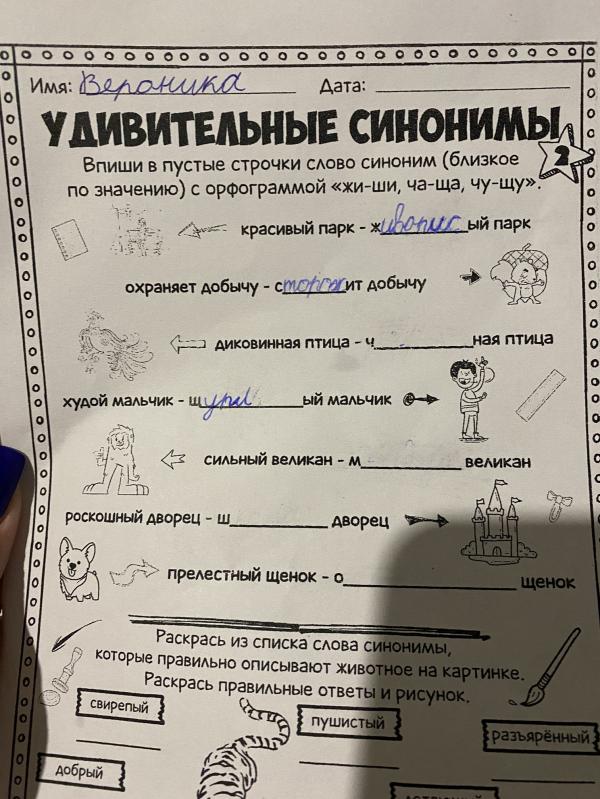 Имя: Вероника Дата:
УДИВИТЕЛЬНЫЕ СИНОНИМЫ
2
Впиши в пустые строчки слово синоним (близкое
по значению) с орфограммой «жи-ши, ча-ща, чу-щу».
красивый парк - живописный парк
охраняет добычу - сторожит добычу
диковинная птица - ч____ная птица
худой мальчик - щупл____ый мальчик
сильный великан - м____ великан
роскошный дворец - ш____ дворец
прелестный щенок - о____ щенок
Раскрась из списка слова синонимы,
которые правильно описывают животное на картинке.
Раскрась правильные ответы и рисунок.
свирепый пушистый разъярённый
добрый